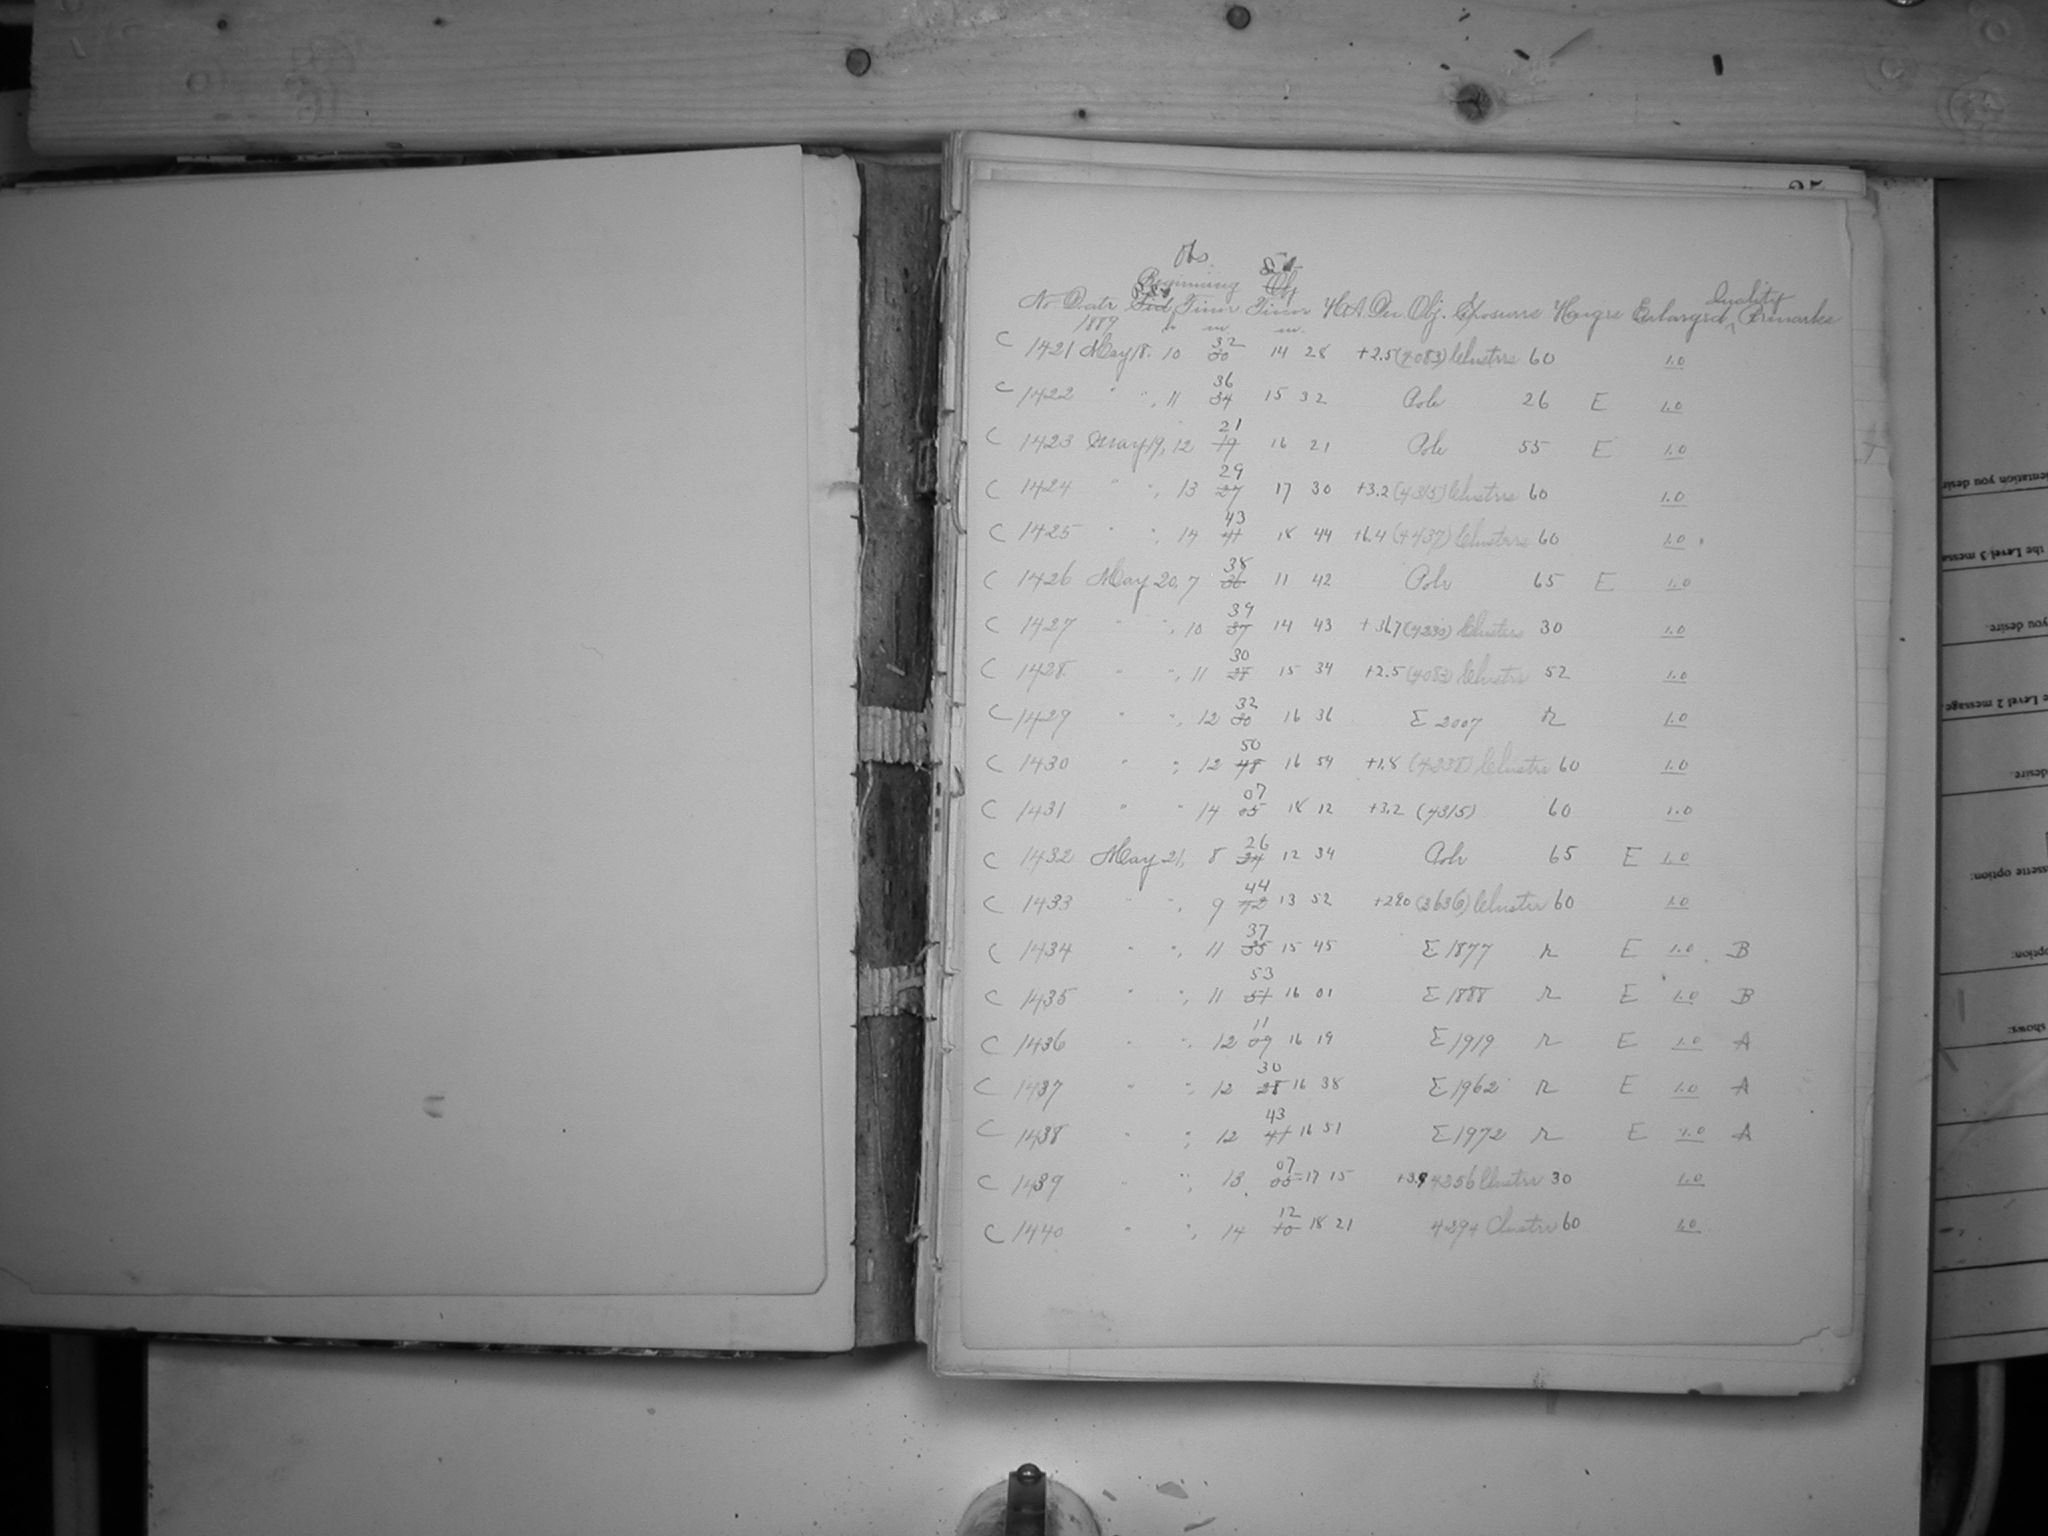 Obs. St
Beginning Obj
No Date Sid Time Time H.A. Dec Obj. Exposure Hongre Enlarged Quality Remarks
1889 h m m
C 1421 May 18. 10 32 30 14 28 +2.5 (4083) Cluster 60 1.0
C 1422 " ", 11 36 34 15 32 Pole 26 E 1.0
C 1423 May 19, 12 21 19 16 21 Pole 55 E 1.0
C 1424 " ", 13 29 27 17 30 +3.2 (4315) Cluster 60 1.0
C 1425 " ", 14 43 41 18 44 +6.4 (4437) Cluster 60 1.0
C 1426 May 20, 7 38 36 11 42 Pole 65 E 1.0
C 1427 " ", 10 39 37 14 43 +36.7 (4230) Cluster 30 1.0
C 1428 " ", 11 30 28 15 34 +2.5 (4083) Cluster 52 1.0
C 1429 " ", 12 32 30 16 36 Σ 2007 r 1.0
C 1430 " ", 12 50 48 16 54 +1.8 (4238) Cluster 60 1.0
C 1431 " " 14 07 05 18 12 +3.2 (4315) 60 1.0
C 1432 May 21, 8 26 24 12 34 Pole 65 E 1.0
C 1433 " ", 9 44 42 13 52 +29.0 (3636) Cluster 60 1.0
C 1434 " ", 11 37 35 15 45 Σ 1877 r E 1.0 B
C 1435 " ", 11 53 51 16 01 Σ 1888 r E 1.0 B
C 1436 " ", 12 11 09 16 19 Σ 1919 r E 1.0 A
C 1437 " ", 12 30 28 16 38 Σ 1962 r E 1.0 A
C 1438 " ", 12 43 41 16 51 Σ 1972 r E 1.0 A
C 1439 " ", 13 07 05 17 15 +3.9 4356 Cluster 30 1.0
C 1440 " ", 14 12 10 18 21 4294 Cluster 60 1.0